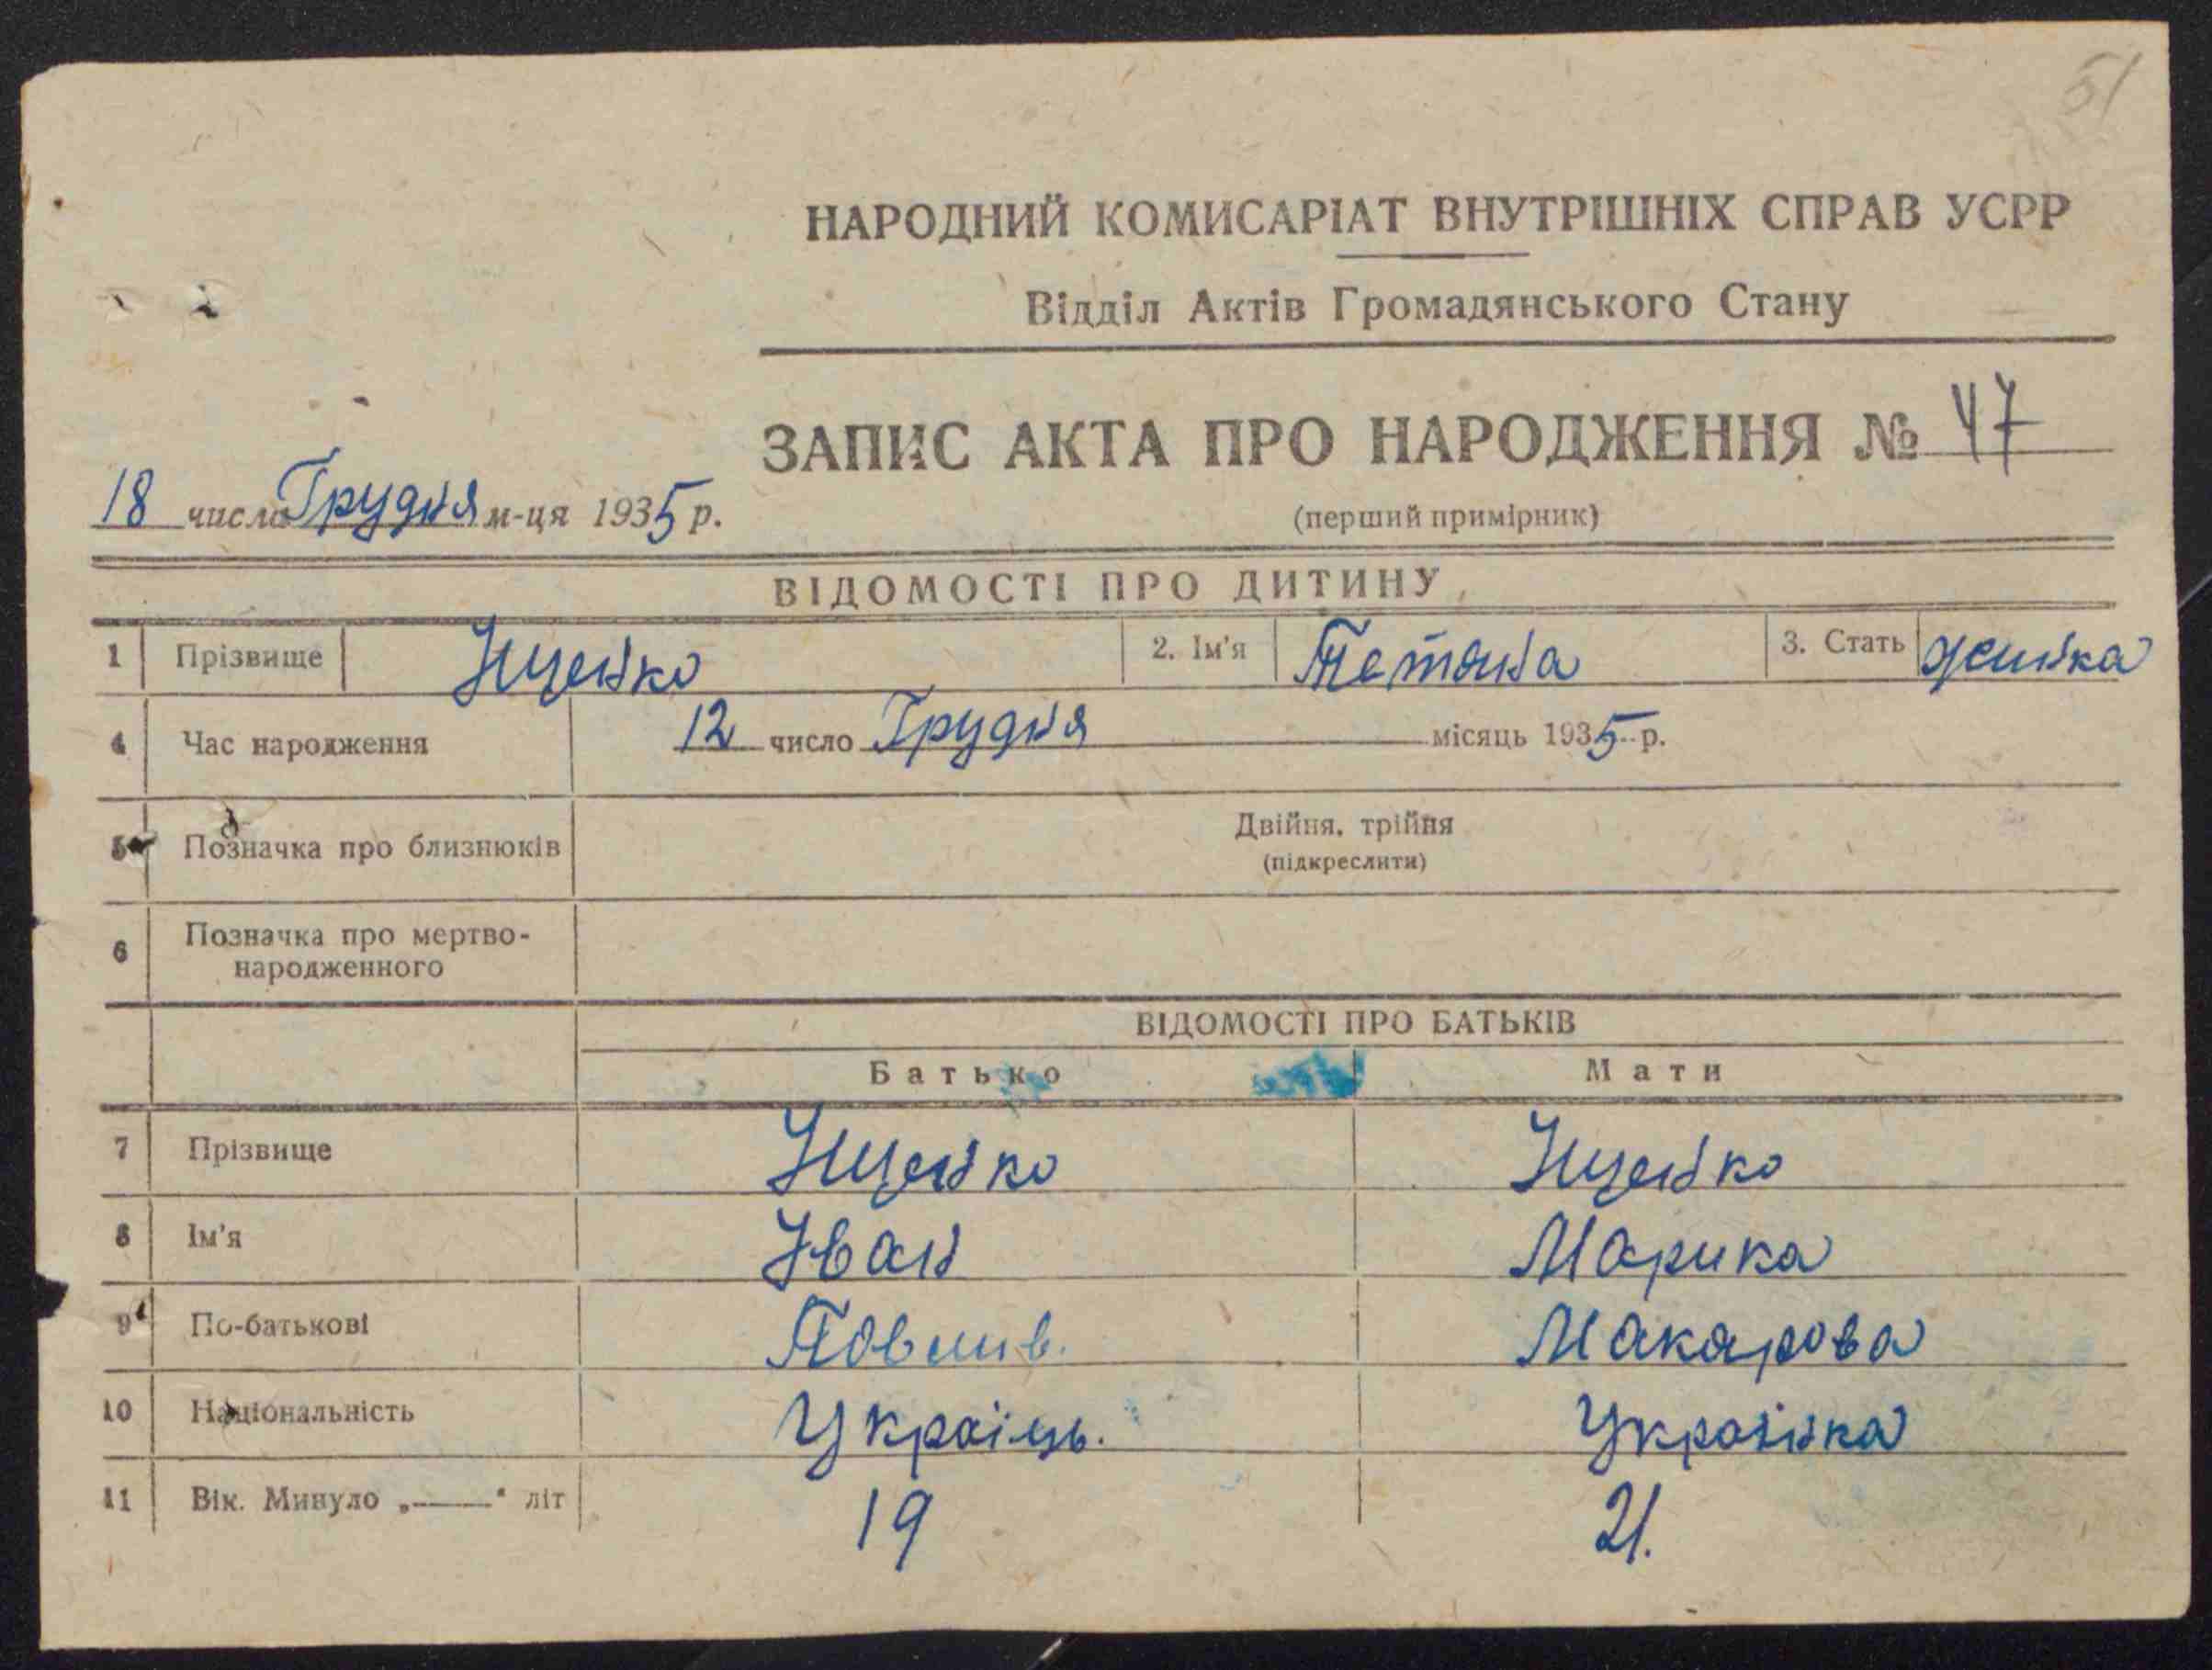 51
НАРОДНИЙ КОМИСАРІАТ ВНУТРІШНІХ СПРАВ УСРР
Відділ Актів Громадянського Стану
ЗАПИС АКТА ПРО НАРОДЖЕННЯ № 47
18 число Грудня м-ця 1935 р.
(перший примірник)
ВІДОМОСТІ ПРО ДИТИНУ
1 Прізвище Іщенко 2. Ім'я Тетяна 3. Стать
4 Час народження 12 число Грудня місяць 1935 р.
5 Позначка про близнюків Двійня, трійня
(підкреслити)
6 Позначка про мертво-
народженного
ВІДОМОСТІ ПРО БАТЬКІВ
Батько Мати
7 Прізвище Іщенко Іщенко
8 Ім'я Іван Марика
9 По-батькові Макарова
10 Національність Українць. Українка
11 Вік. Минуло „——“ літ 19 21.